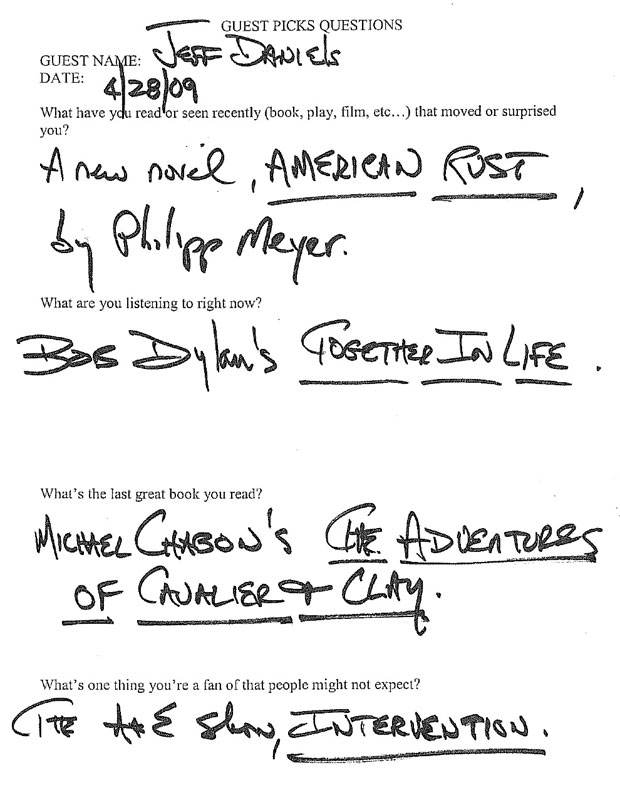 GUEST PICKS QUESTIONS
GUEST NAME: JEFF DANIELS
DATE: 4/28/09
What have you read or seen recently (book, play, film, etc…) that moved or surprised
you?
A new novel, AMERICAN RUST,
by Philipp Meyer.
What are you listening to right now?
BOB Dylan's TOGETHER IN LIFE.
What's the last great book you read?
MICHAEL CHABON'S THE ADVENTURES
OF CAVALIER & CLAY.
What's one thing you're a fan of that people might not expect?
THE A&E Show, INTERVENTION.